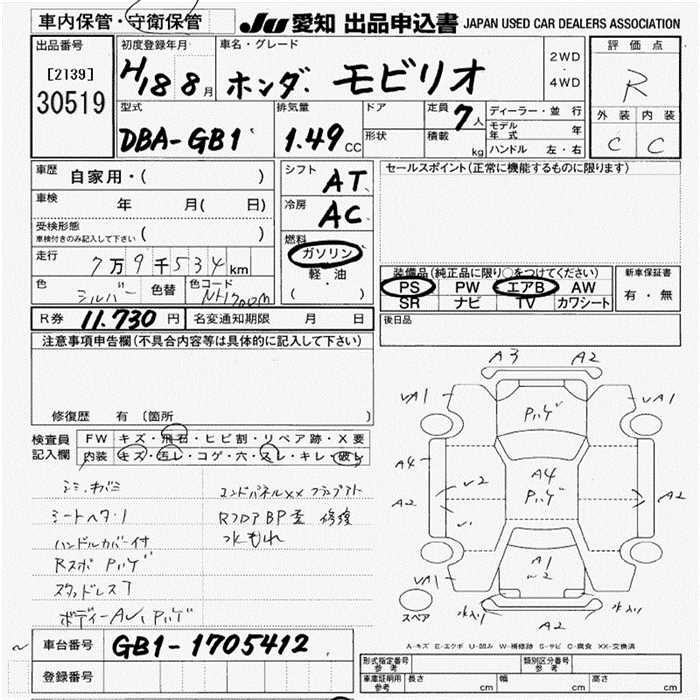 車内保管・守衛保管
JU 愛知 出品申込書 JAPAN USED CAR DEALERS ASSOCIATION
出品番号
[2139]
30519
初度登録年月
H18 8月
車名・グレード
ホンダ モビリオ
2WD
・
4WD
評価点
R
外装 内装
C C
型式
DBA-GB1
排気量
1.49 CC
ドア
形状
定員 7人
積載 kg
ディーラー・並行
モデル年式 年
ハンドル 左・右
車歴
自家用・( )
車検
年 月( 日)
受検形態
車検付きのみ記入して下さい ( )
走行
7万9千534km
色
シルバー
色替
色コード
NH700M
シフト
AT
冷房
AC
燃料
ガソリン
軽・油
( )
セールスポイント(正常に機能するものに限ります)
装備品(純正品に限り○をつけてください)
PS PW エアB AW
SR ナビ TV カワシート
新車保証書
有・無
R券 11,730円 名変通知期限 月 日
後日品
注意事項申告欄(不具合内容等は具体的に記入して下さい)
修復歴 有 〔箇所 〕
検査員
記入欄
FW キズ・飛石・ヒビ割・リペア跡・X要
内装 キズ・汚レ・コゲ・穴・スレ・キレ・破レ
シミ・
シートヘタリ
ハンドルカバー付
Rスポ ハゲ
スタッドレス
ボディーA ハゲ
エンドパネルXX
RフロアBP歪 修復
水もれ
A3 A2
A1 A1
ハゲ
A4 A4
ハゲ
A2 A2
A1
A1
A2
スペア
A-キズ E-エクボ U-凹み W-補修跡 S-サビ C-腐食 XX-交換済
車台番号 GB1-1705412
登録番号
形式指定番号
参考
類別区分番号
参考
車庫証明用
参考
長さ cm 幅 cm 高さ cm